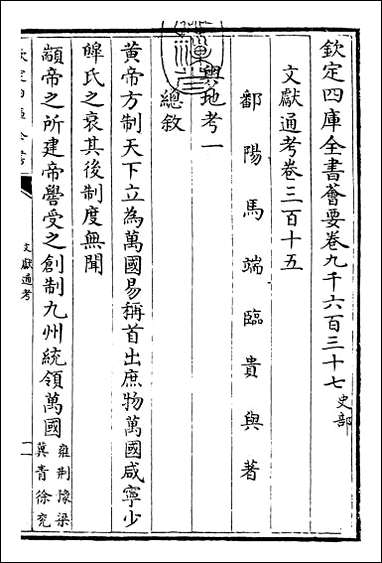 欽定四庫全書薈要卷九千六百三十七 史部
文獻通考卷三百十五
鄱陽馬端臨貴與著
輿地考一
總敘
黄帝方制天下立為萬國易稱首出庶物萬國咸寧少
皥氏之衰其後制度無聞
顓帝之所建帝嚳受之創制九州統領萬國 雍荆豫梁
冀青徐兖
欽定四庫全書
文獻通考
一